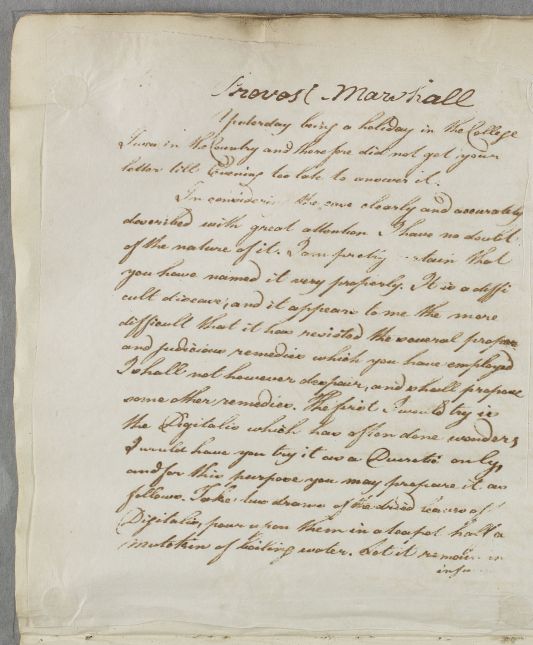 Provost Marshall
Yesterday being a holiday in the College
I was in the Country and therefore did not get your
letter till Evening too late to answer it.
In consider the case clearly and accurately
described with great attention I have no doubt
of the nature of it. I am pretty tain that
you have named it very properly. It is a diffi
cult disease, and it appears to me the more
difficult that it has resisted the several proper
and judicious remedies which you have employed
I shall not however despair, and shall propose
some other remedies. The first I would try is
the Digitalis which has often done wonders,
I would have you try it as a Diuretic only,
and for this purpose you may prepare it as
follows. Take two drams of the dried leaves of
Digitalis, pour upon them in a teapot half a
mutchkin of boiling water. Let it remain in
infu